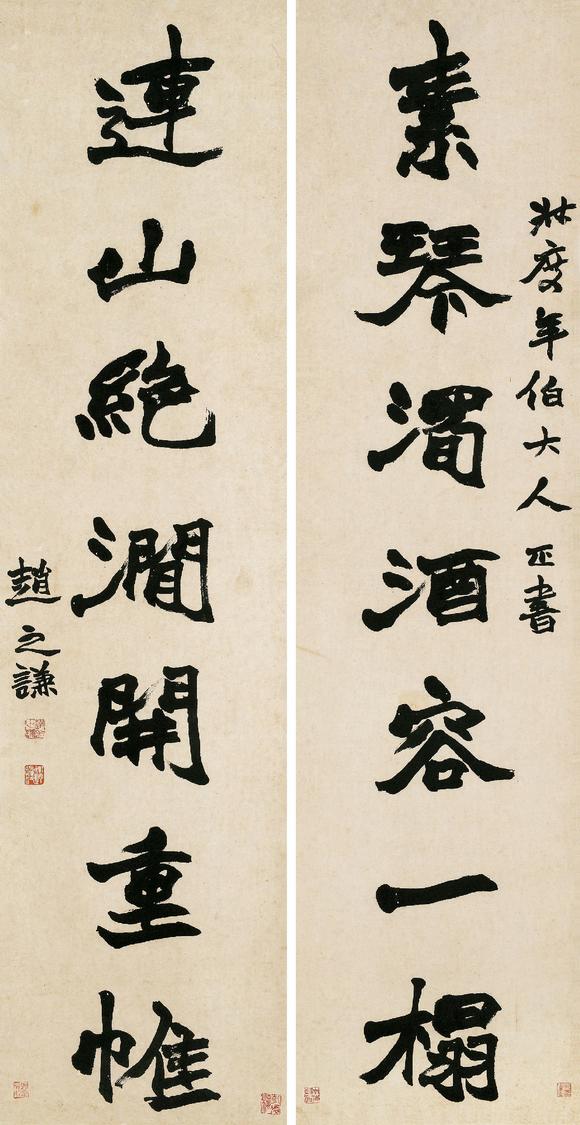 度年伯大人正書
素琴濁酒容一榻
連山絶澗開重帷
趙之謙